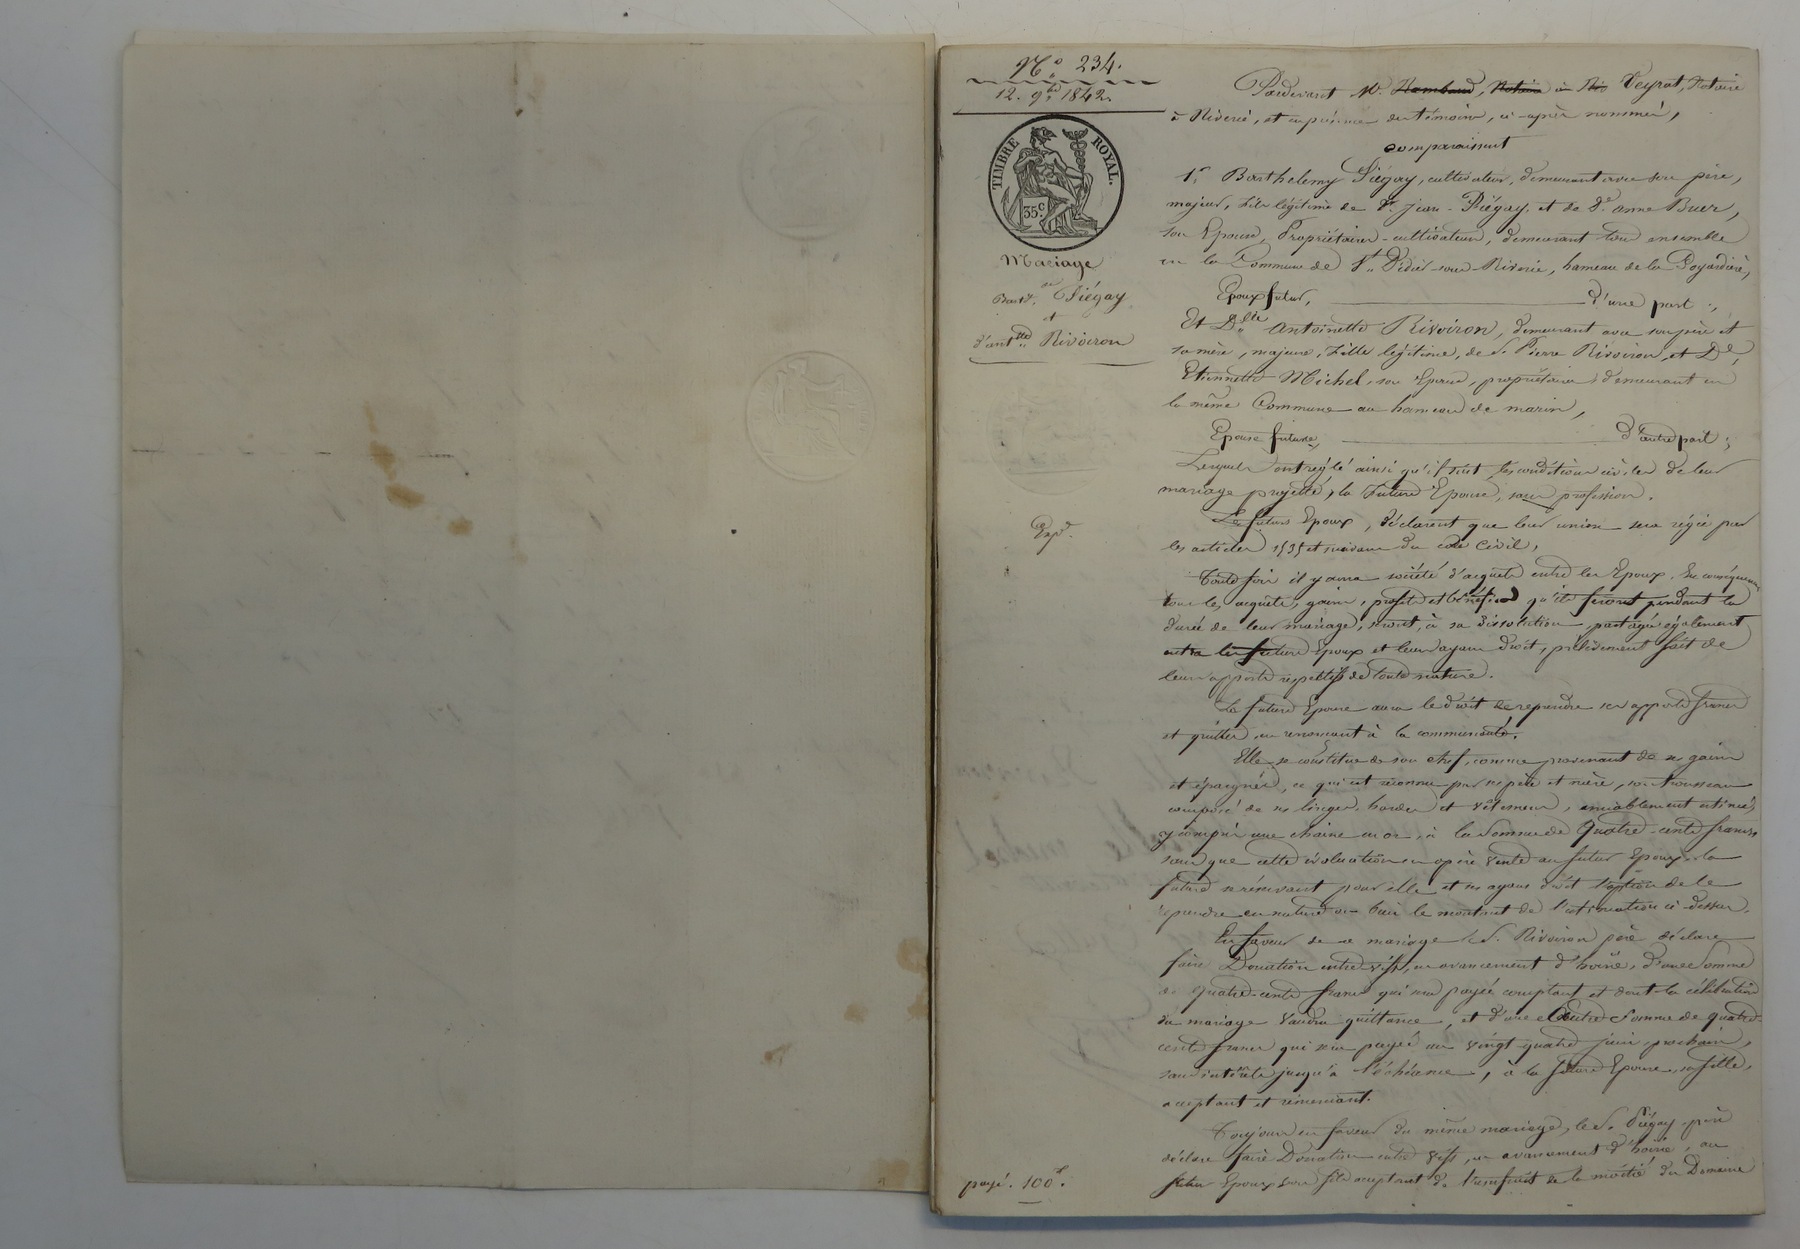 N.° 234.
12. 9bre 1842.
TIMBRE ROYAL.
35 c.
Mariage
de
Barth. Piégay
et
d'antte Rivoiron
Exp.
payé. 100 f.
Pardevant Me. Rambaud, Notaire à Riv Veyrat, Notaire
à Riverie, et en présence des témoins, ci-après nommés,
comparaissent
1.° Barthelemy Piégay, cultivateur, demeurant avec son père,
majeur, fils légitime de Sr. Jean Piégay, et de De. anne Buer,
son Epouse, Propriétaires-cultivateurs, demeurant tous ensemble
en la Commune de St. Didier-sous-Riverie, hameau de la Goyardière,
Epoux futur, d'une part;
Et Dlle Antoinette Rivoiron, demeurant avec son père et
sa mère, majeure, fille légitime, de S. Pierre Rivoiron, et De.
Etiennette Michel, son Epouse, propriétaires demeurant en
la même Commune au hameau de marin,
Epouse future, d'autre part;
Lesquels ont réglé ainsi qu'il suit, les conditions civiles de leur
mariage projetté, la future Epouse, sans profession.
Les futurs Epoux, déclarent que leur union sera régie par
les articles 1535 et suivans du code Civil,
Toute fois il y aura société d'acquets entre les Epoux. En conséquence
tous les acquets, gains, profits et bénéfices qu'ils feront pendant la
durée de leur mariage, seront, à sa dissolution partagés également
entre les futurs Epoux et leurs ayans droit, prélèvement fait de
leurs apports respectifs de toute nature.
La future Epouse aura le droit de reprendre ses apports francs
et quittes, en renonçant à la communauté.
Elle se constitue de son chef, comme provenant de ses gains
et épargnes, ce qui est reconnu par ses père et mère, son trousseau
composé de ses linges, hardes et vêtemens, amiablement estimés,
y compris une chaine en or, à la somme de Quatre-cents francs
sans que cette évaluation en opère vente au futur Epoux, la
future se réservant pour elle et ses ayans droit l'option de le
reprendre en nature ou bien le montant de l'estimation ci-dessus.
En faveur de ce mariage le S. Rivoiron père déclare
faire Donation entre vifs, en avancement d'hoirie, d'une Somme
de quatre-cents francs qui sera payée comptant et dont la célébration
du mariage vaudra quittance, et d'une autre Somme de quatre-
cents francs qui sera payée au vingt quatre juin prochain,
sans intérêts jusqu'à l'échéance, à la future Epouse, sa fille,
acceptant et remerciant.
Toujours en faveur du même mariage, le S. Piégay père
déclare faire Donation entre vifs, en avancement d'hoirie, au
futur Epoux son fils acceptant de l'usufruit de la moitié du Domaine